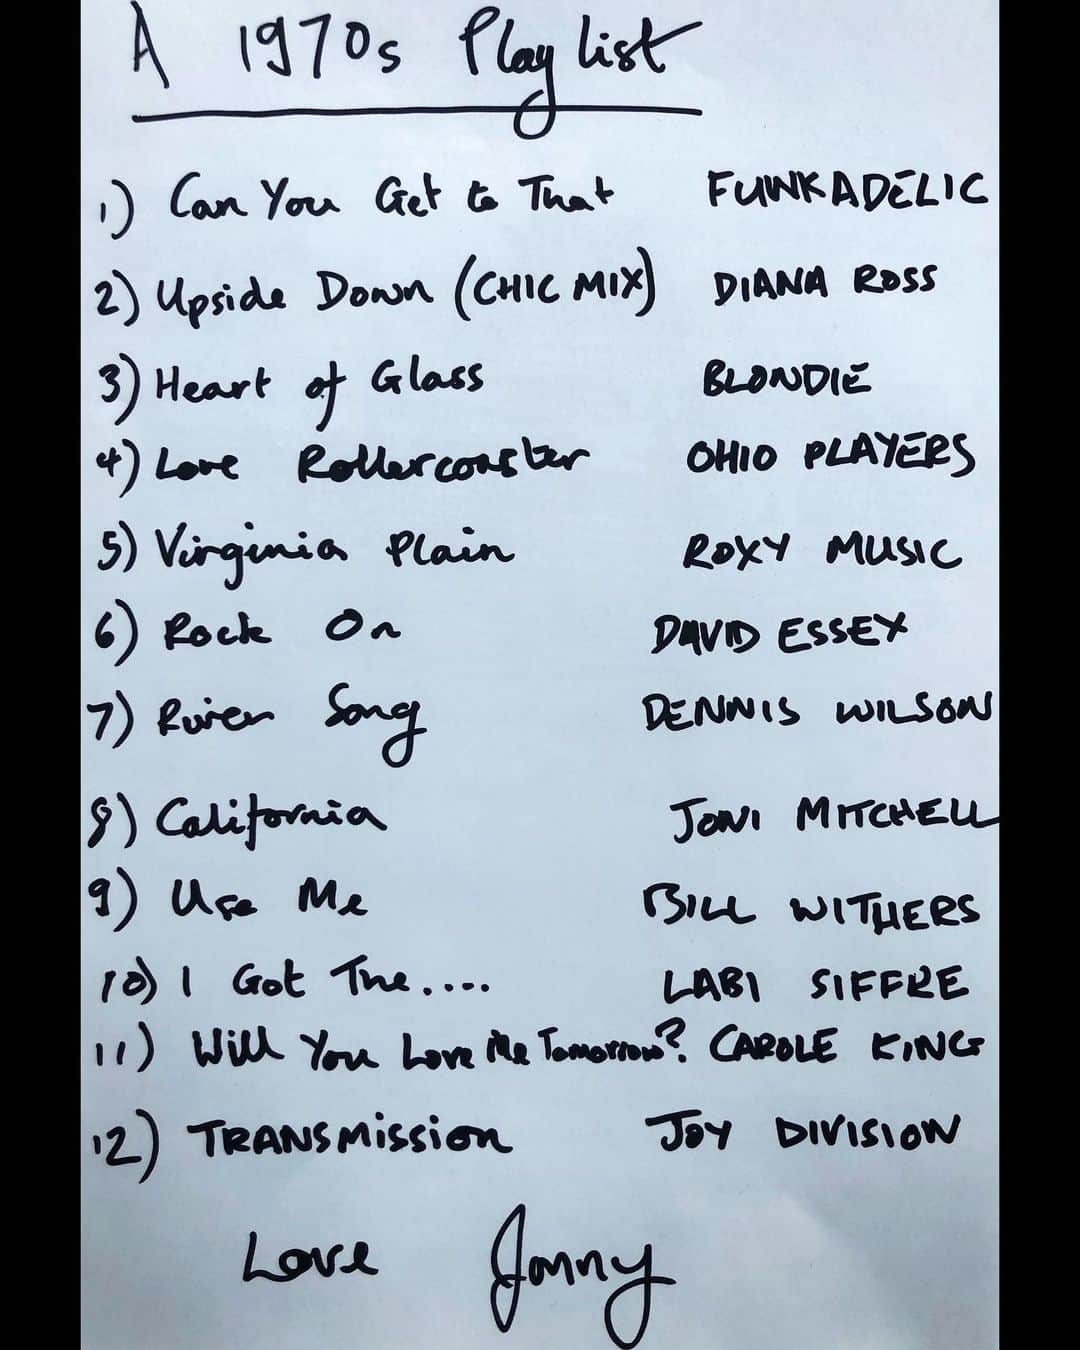 A 1970s Playlist
1) Can You Get to That FUNKADELIC
2) Upside Down (CHIC MIX) DIANA ROSS
3) Heart of Glass BLONDIE
4) Love Rollercoaster OHIO PLAYERS
5) Virginia Plain ROXY MUSIC
6) Rock On DAVID ESSEX
7) River Song DENNIS WILSON
8) California JONI MITCHELL
9) Use Me BILL WITHERS
10) I Got The.... LABI SIFFRE
11) Will You Love Me Tomorrow? CAROLE KING
12) TRANSMISSION JOY DIVISION
Love Jonny